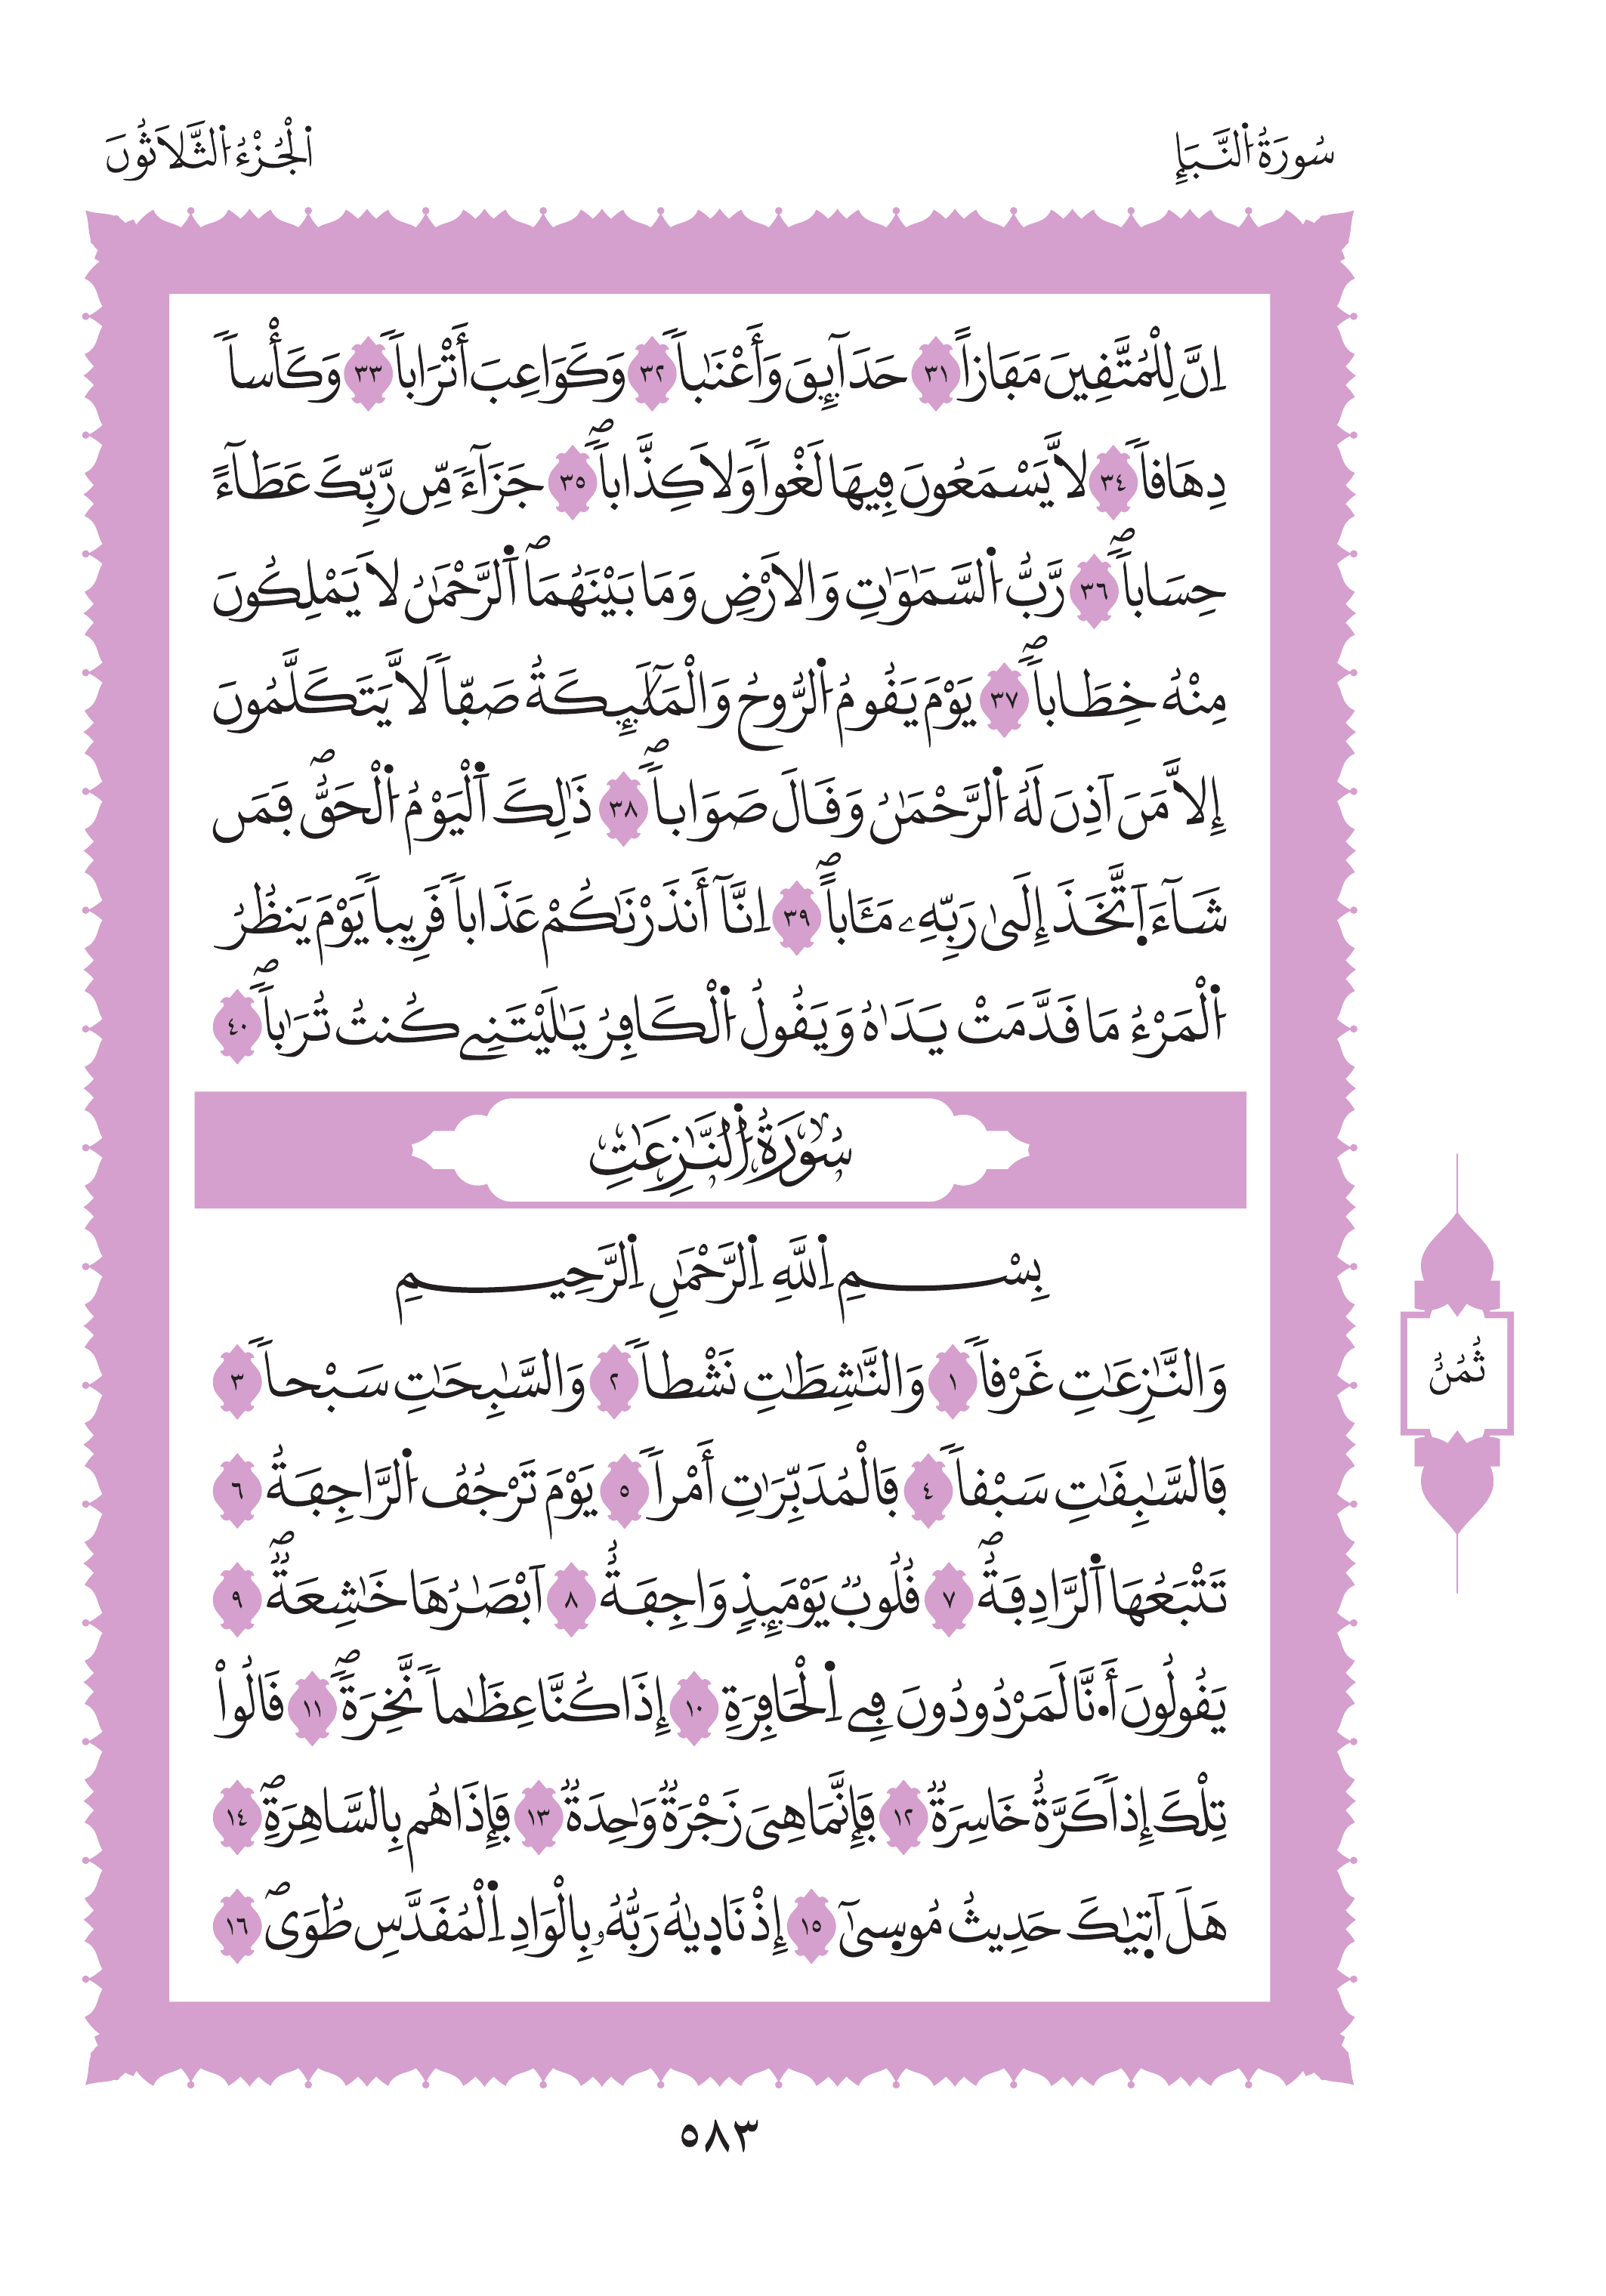 سُورَةُ اُ۬لنَّبَإِ
اَ۬لْجُزْءُ اُ۬لثَّلَاثُونَ
اِنَّ لِلْمُتَّفِينَ مَفَازاً ٣١ حَدَآئِقَ وَأَعْنَٰباٗ ٣٢ وَكَوَاعِبَ أَتْرَاباٗ ٣٣ وَكَأْساٗ
دِهَافاٗ ٣٤ لَّا يَسْمَعُونَ فِيهَا لَغْواٗ وَلَا كِذَّاباٗۖ ٣٥ جَزَآءَٗ مِّن رَّبِّكَ عَطَآءً
حِسَاباٗۖ ٣٦ رَّبُّ اُ۬لسَّمَٰوَٰتِ وَالَارْضِ وَمَا بَيْنَهُمَاۖ اَ۬لرَّحْمَٰنُ لَا يَمْلِكُونَ
مِنْهُ خِطَاباٗۖ ٣٧ يَوْمَ يَقُومُ اُ۬لرُّوحُ وَالْمَلَٰٓئِكَةُ صَفّاٗ لَّا يَتَكَلَّمُونَ
إِلَّا مَنَ اَذِنَ لَهُ اُ۬لرَّحْمَٰنُ وَقَالَ صَوَاباٗۖ ٣٨ ذَٰلِكَ اَ۬لْيَوْمُ اُ۬لْحَقُّۖ فَمَن
شَآءَ اَ۪تَّخَذَ إِلَىٰ رَبِّهِۦ مَـَٔاباًۖ ٣٩ اِنَّآ أَنذَرْنَٰكُمْ عَذَاباٗ قَرِيباٗ يَوْمَ يَنظُرُ
اُ۬لْمَرْءُ مَا قَدَّمَتْ يَدَٰهُ وَيَقُولُ اُ۬لْكَافِرُ يَٰلَيْتَنِے كُنتُ تُرَٰباٗۖ ٤٠
سُورَةُ اُ۬لنَّٰزِعَٰتِ
بِسْمِ اِ۬للَّهِ اِ۬لرَّحْمَٰنِ اِ۬لرَّحِيمِ
وَالنَّٰزِعَٰتِ غَرْقاٗ ١ وَالنَّٰشِطَٰتِ نَشْطاٗ ٢ وَالسَّٰبِحَٰتِ سَبْحاٗ ٣
ثُمُنُ
فَالسَّٰبِقَٰتِ سَبْقاٗ ٤ فَالْمُدَبِّرَٰتِ أَمْراٗ ٥ يَوْمَ تَرْجُفُ اُ۬لرَّاجِفَةُ ٦
تَتْبَعُهَا اَ۬لرَّادِفَةُۖ ٧ قُلُوبٞ يَوْمَئِذٖ وَاجِفَةٌ ٨ اَبْصَٰرُهَا خَٰشِعَةٞۖ ٩
يَقُولُونَ أَ.نَّا لَمَرْدُودُونَ فِے اِ۬لْحَافِرَةِ ١٠ إِذَا كُنَّا عِظَٰماٗ نَّخِرَةٗۖ ١١ قَالُواْ
تِلْكَ إِذاٗ كَرَّةٌ خَاسِرَةٞ ١٢ فَإِنَّمَا هِيَ زَجْرَةٞ وَٰحِدَةٞ ١٣ فَإِذَا هُم بِالسَّاهِرَةِۖ ١٤
هَلَ اَت۪يٰكَ حَدِيثُ مُوس۪ىٰٓ ١٥ إِذْ نَاد۪يٰهُ رَبُّهُۥ بِالْوَادِ اِ۬لْمُقَدَّسِ طُوَىۖ ١٦
٥٨٣